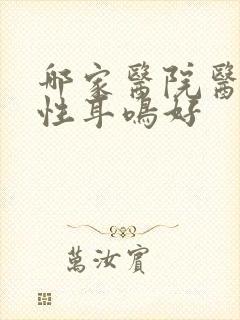 那家醫院醫
性耳鳴好
萬汝賓